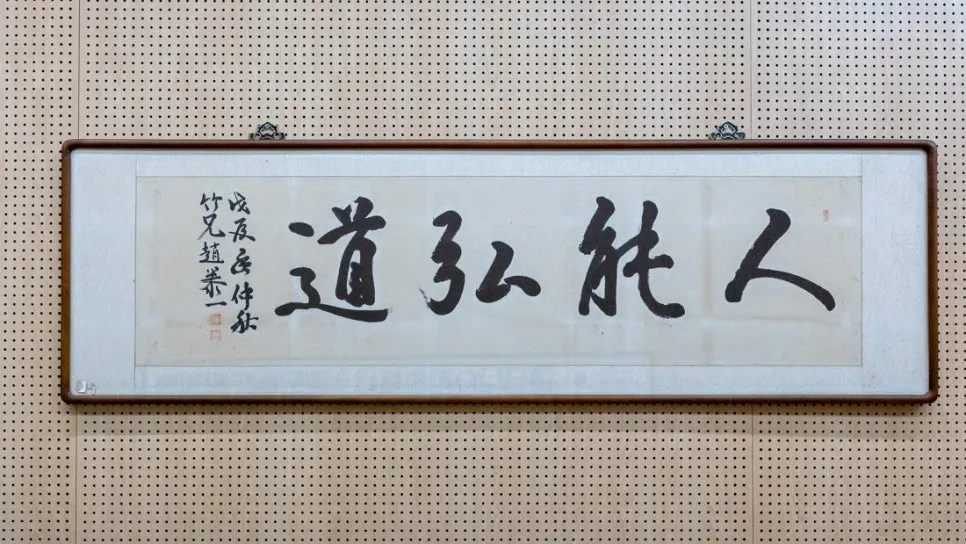 人能弘道
戊辰仲秋
竹兄趙一